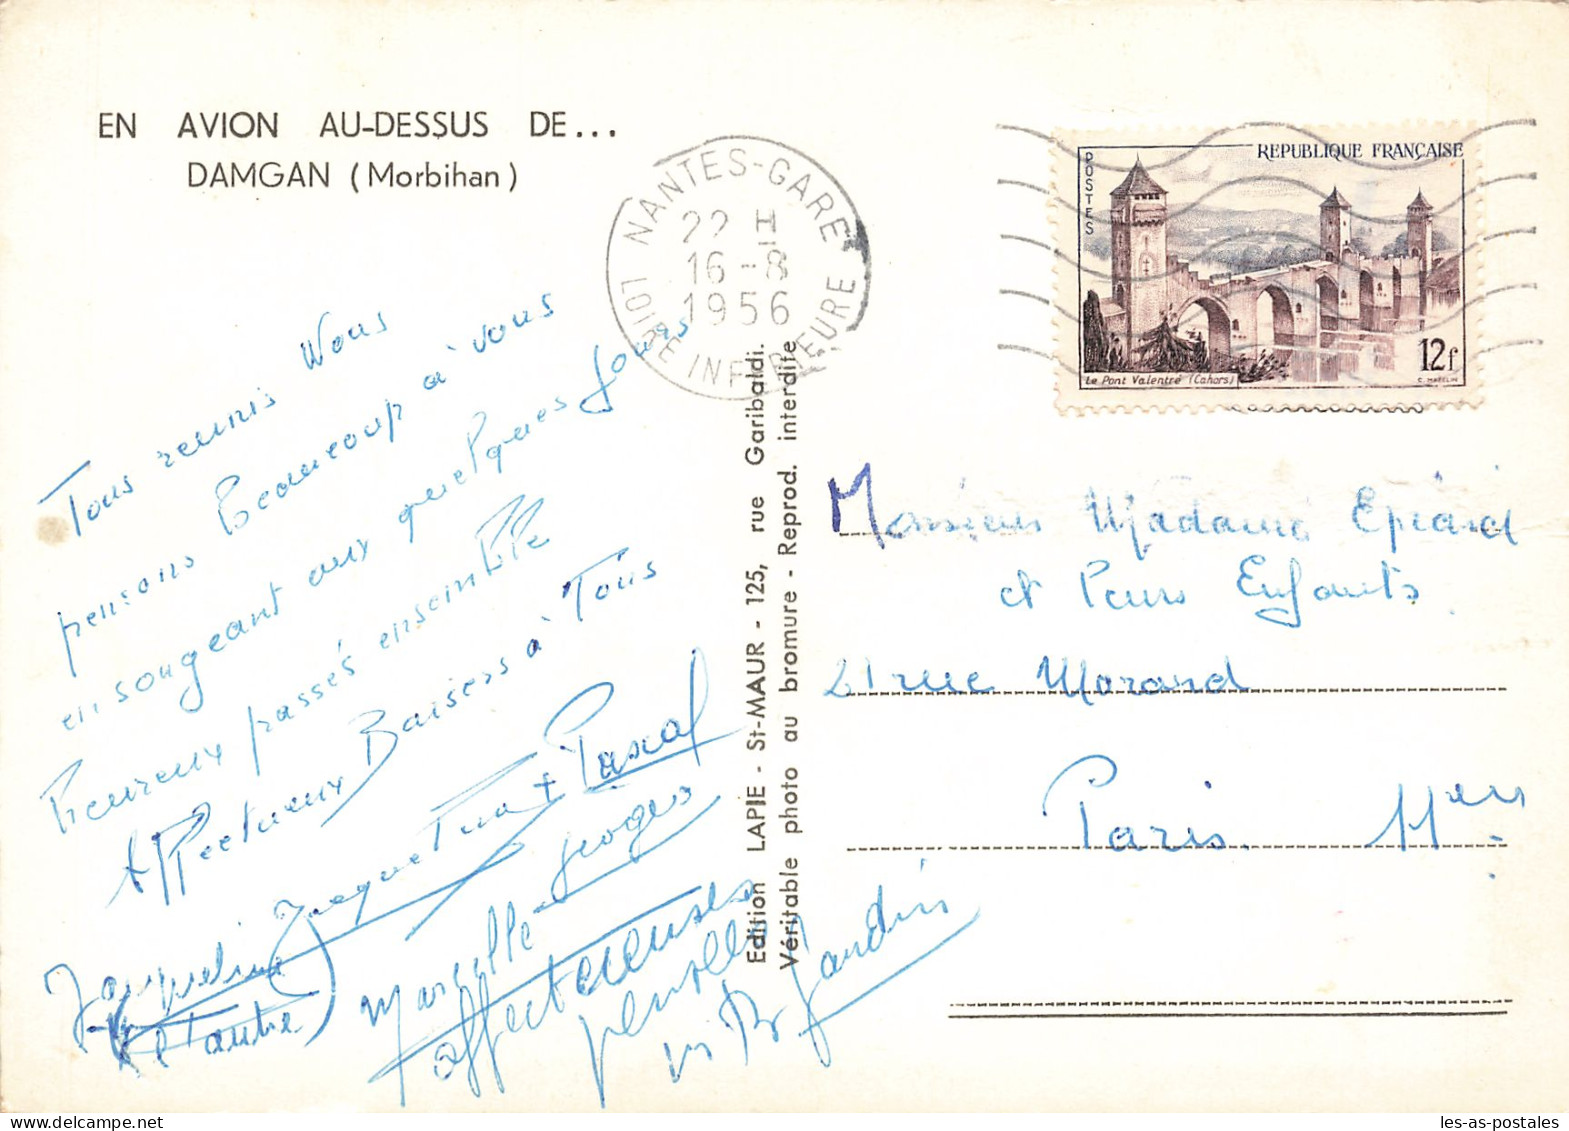 EN AVION AU-DESSUS DE...
DAMGAN (Morbihan)
NANTES-GARE
22 H
16-8
1956
LOIRE INFERIEURE
POSTES
REPUBLIQUE FRANÇAISE
Le Pont Valentré (Cahors)
12f
C. MAZELIN
Tous reunis Nous
pensons Beaucoup à vous
en songeant aux quelques Jours
heureux passés ensemble
Affectueux Baisers à Tous
Jacquet + Pascal
Georges
Jacqueline
(et l'autre)
Marcelle
affectueuses
pensées
Jardin
Edition LAPIE - St-MAUR - 125, rue Garibaldi.
Véritable photo au bromure - Reprod. interdite
Monsieur Madame Epiard
et leurs Enfants
21 rue Morand
Paris. 11em
les-as-postales